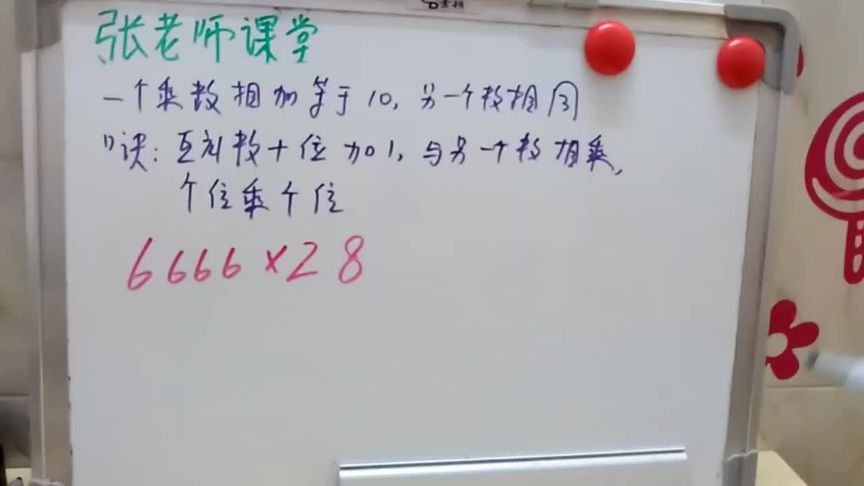 张老师课堂
一个乘数相加等于10，另一个数相同
口诀：互补数十位加1，与另一个数相乘，
个位乘个位
6666×28